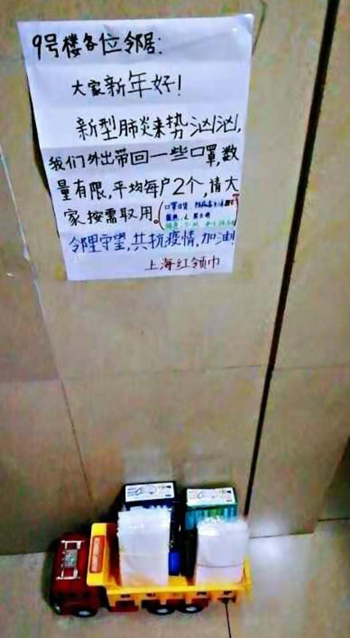 9号楼各位邻居:
大家新年好!
新型肺炎来势汹汹,
我们外出带回一些口罩,数
量有限,平均每户2个,请大
家按需取用。
邻里守望,共抗疫情,加油!
上海红领巾